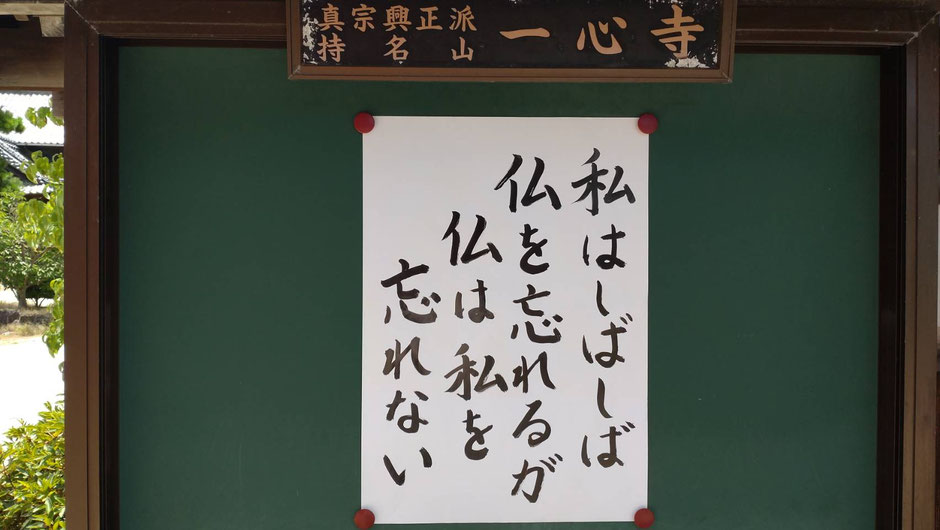 真宗興正派
持名山
一心寺
私はしばしば
仏を忘れるが
仏は私を
忘れない